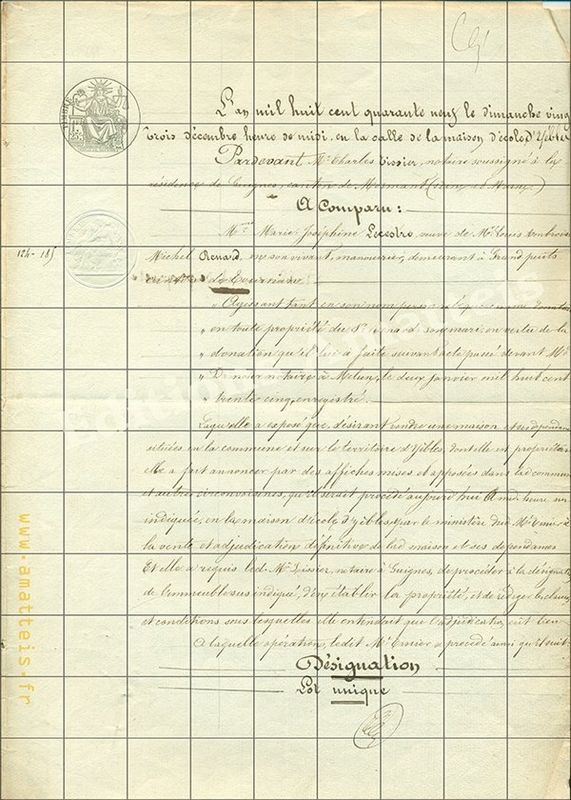 L'an mil huit cent quarante neuf le dimanche ving
trois décembre heure de midi en la salle de la maison d'école d'Yebles
Pardevant Me Charles Tissier, notaire soussigné à la
résidence de Guignes, canton de Mormant (Seine et Marne)
A Comparu:
Mme Marie Joséphine Lecestre veuve de Mr Louis Ambroise
124 - 185
Michel Renard, en son vivant, manouvrier, demeurant à Grand puits
Agissant tant en son nom personnel que comme donataire
en toute propriété du Sr Renard son mari, en vertu de la
donation qu'il lui a faite suivant acte passé devant Me
notaire à Melun, le deux janvier mil huit cent
trente cinq, enregistré.
Laquelle a exposé que, désirant vendre une maison et ses dépendances
situées en la commune et sur le territoire d'Yèbles, dont elle est propriétaire
Elle a fait annoncer par des affiches mises et apposées dans lad commune
et autres circonvoisines, qu'il serait procédé aujourd'hui à midi heure sus
indiquée, en la maison d'école d'Yèbles, par le ministère dud Me Tissier à
la vente et adjudication définitive de lad maison et ses dépendances
Et elle a requis led. Me Tissier, notaire à Guignes, de procéder à la désignation
de l'immeuble sus indiqué, d'en établir la propriété, et de rédiger les charges
et conditions sous lesquelles elle entendait que l'adjudication eût lieu
A laquelle opération, ledit Me Tissier a procédé ainsi qu'il suit:
Désignation
Lot unique
Editions amatteis
www.amatteis.fr